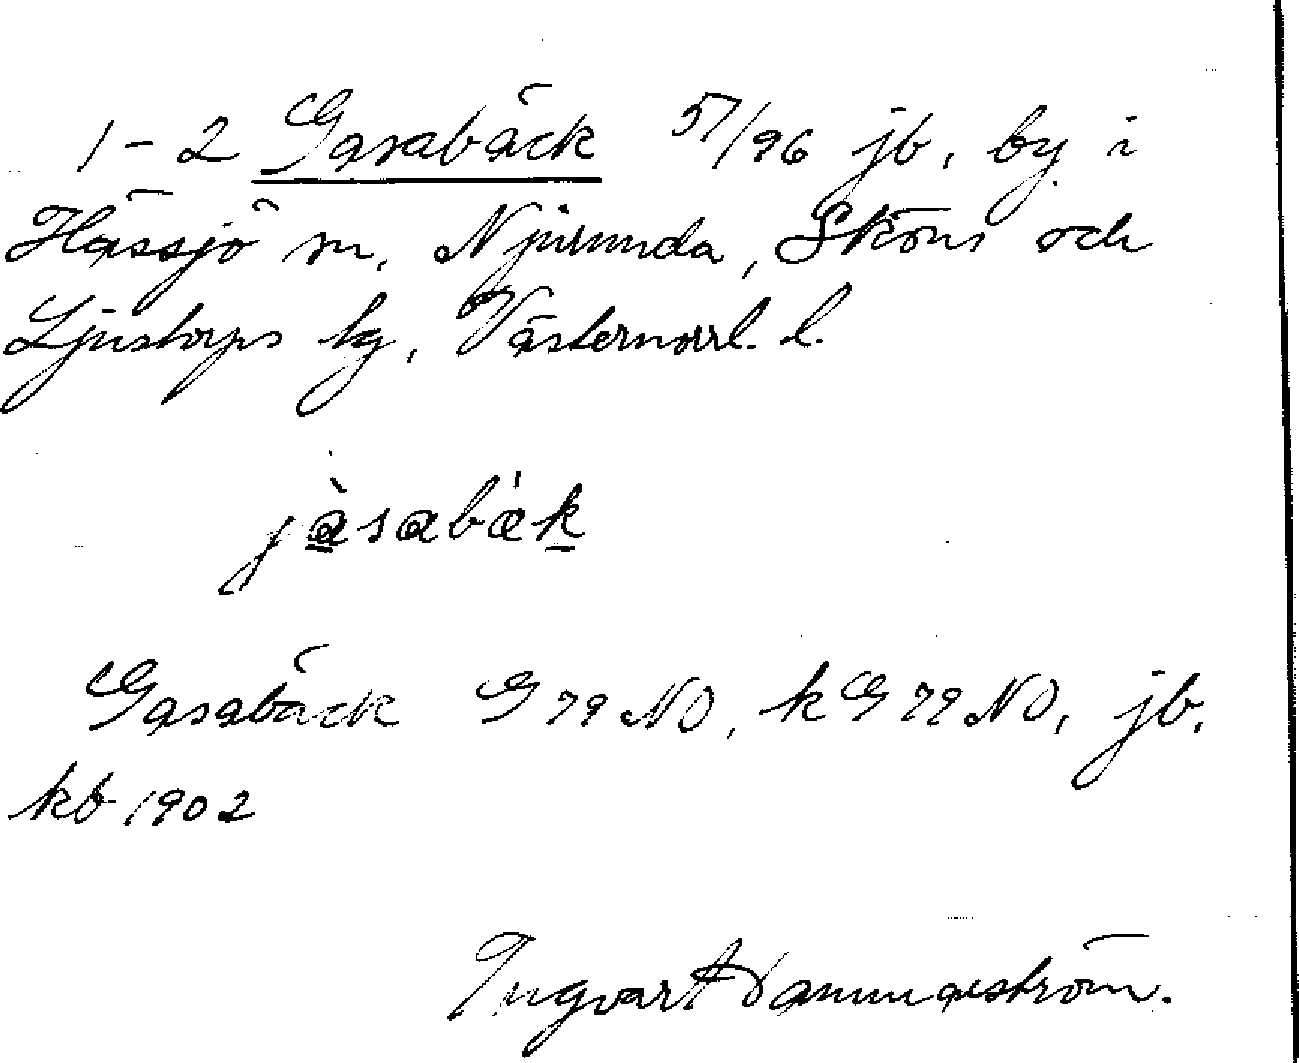 1-2 Gasabäck 57/96 jb, by i
Hässjö sn, Njurunda, Sköns och
Ljustorps tg, Västernorrl. l.
jàsabák
Gasabäck G 79 NO, kG 79 NO, jb,
kb 1902
Ingvar